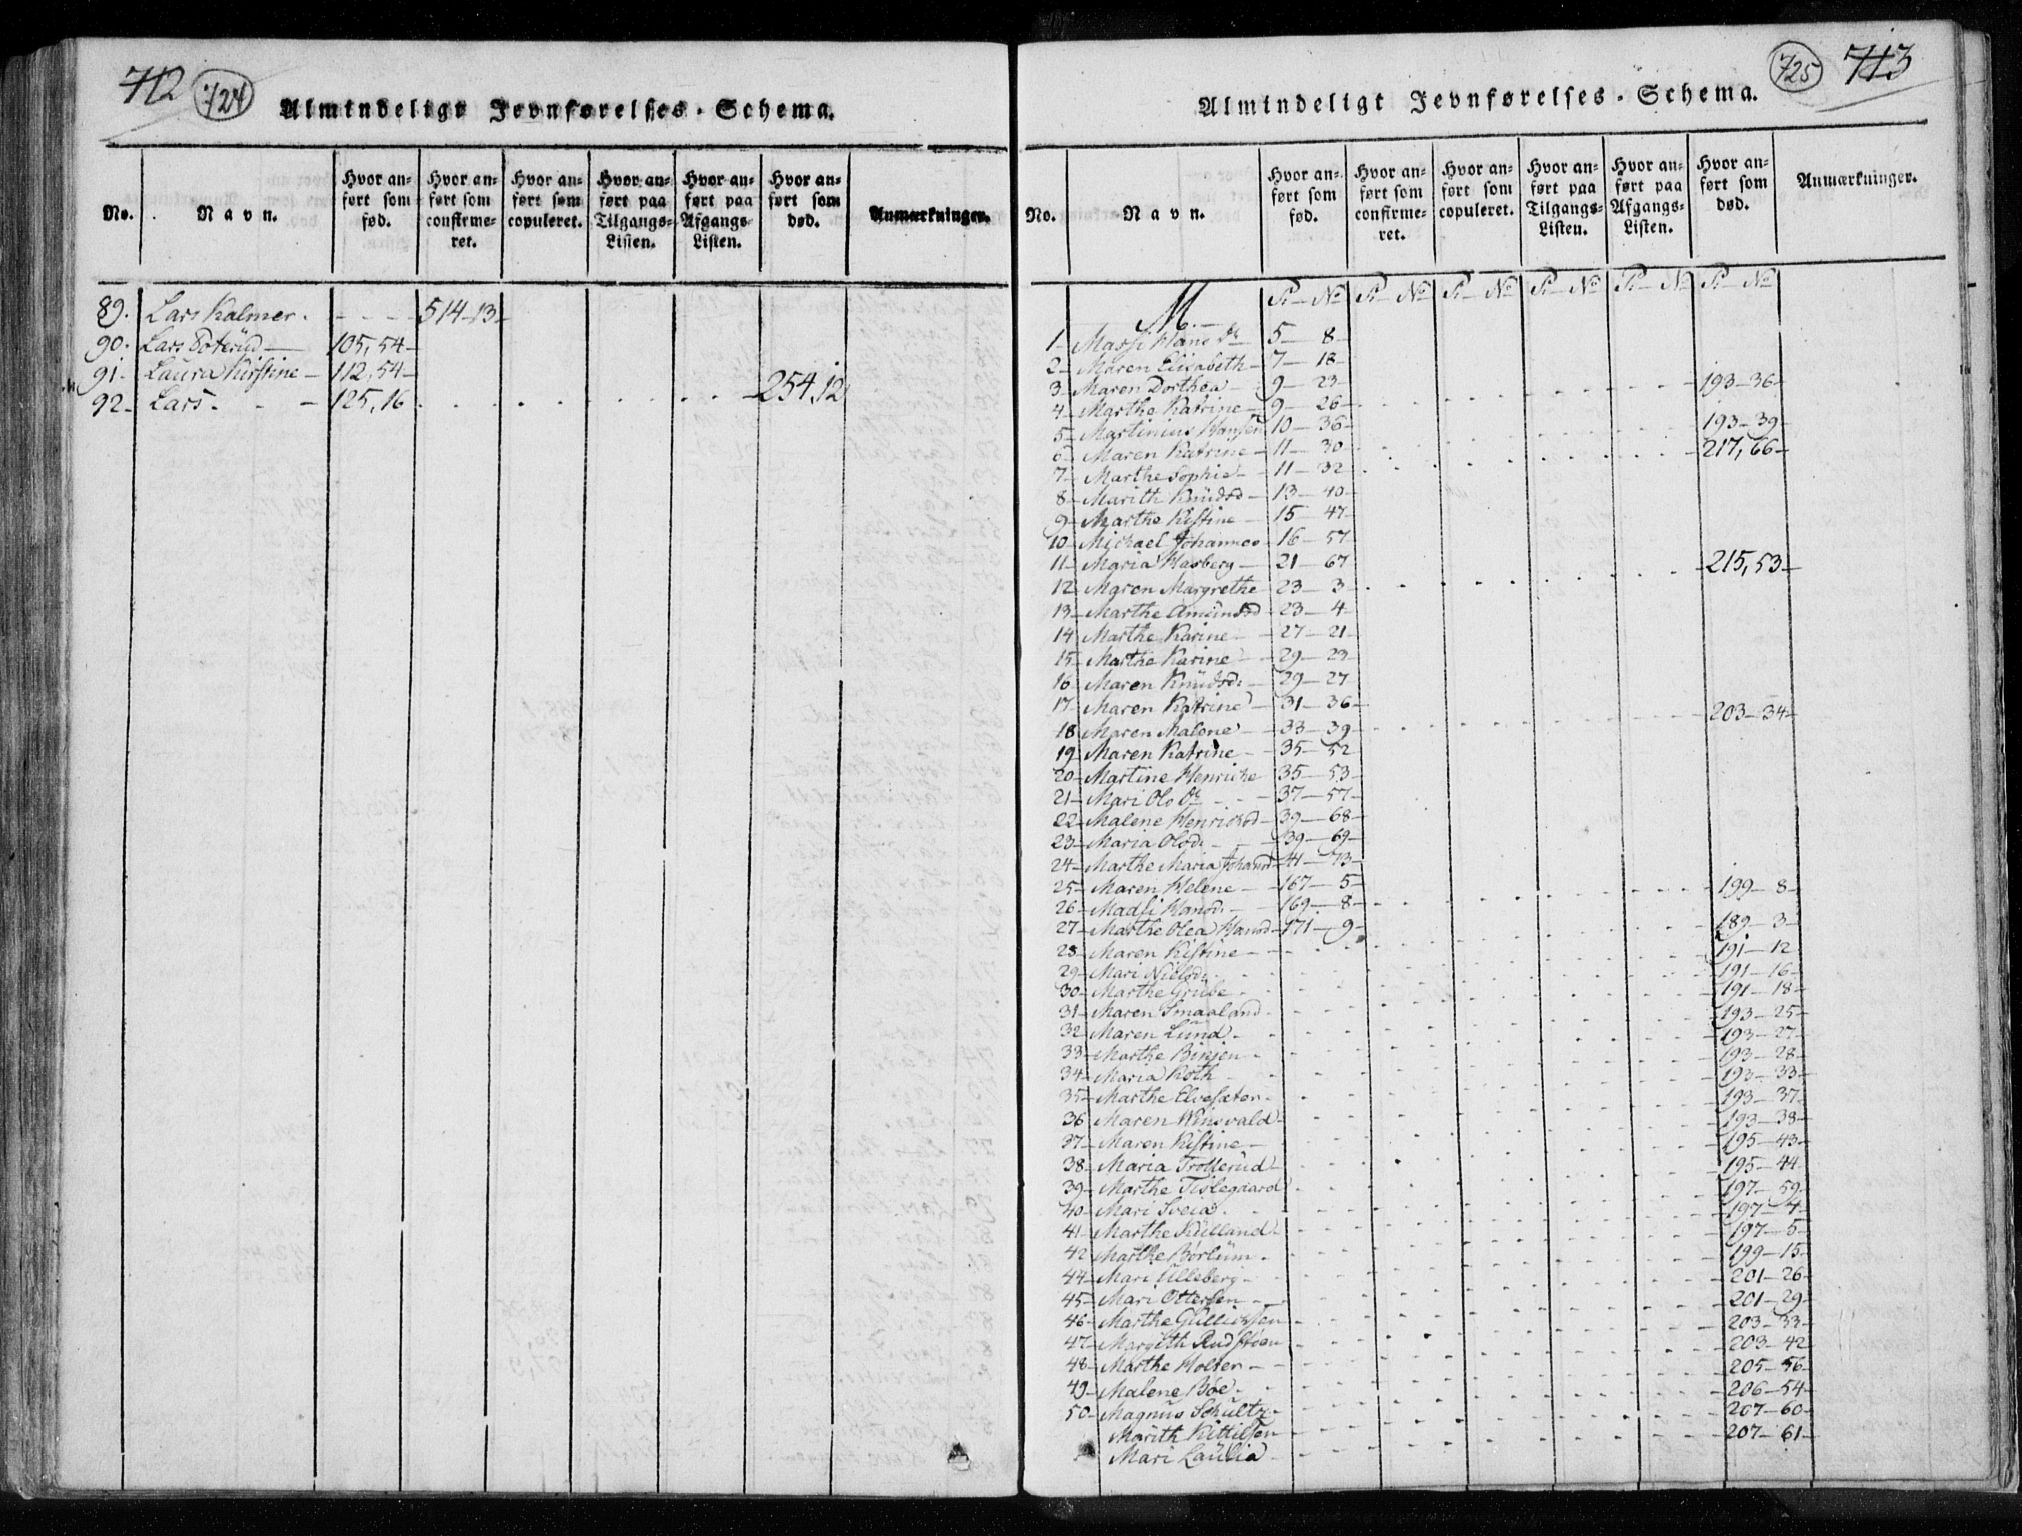 712 724
Almindeligt Jevnførelses-Schema.
No. Navn. Hvor anført som fød. Hvor anført som confirmeret. Hvor anført som copuleret. Hvor anført paa Tilgangs-Listen. Hvor anført paa Afgangs-Listen. Hvor anført som død. Anmærkninger.
89. Lars Kalmer. - - - 514-13-
90. Lars 105, 54-
91- Laura Kirstine - 112, 54-
92- Lars. - - 125, 16 - 254, 12
725 713
Almindeligt Jevnførelses-Schema.
No. Navn. Hvor anført som fød. Hvor anført som confirmeret. Hvor anført som copuleret. Hvor anført paa Tilgangs-Listen. Hvor anført paa Afgangs-Listen. Hvor anført som død. Anmærkninger.
M. P- No P- No P- No P- No P- No P- No
1- Massi Hans Dr 5- 8-
2- Maren Elisabeth- 7- 18-
3- Maren Dorthea- 9- 23- 193-36-
4- Marthe Katrine- 9- 26-
5- Martinius Hansen 10- 36- 193-39-
6- Maren Katrine- 11- 30- 217, 66-
7- Marthe Sophie- 11- 32-
8- Marith Knüdsd- 13- 40-
9- Marthe Kistine- 15- 47-
10- Michael Johannes- 16- 57-
11- Maria Hasberg- 21- 67
12- Maren Margrethe- 23- 3- 215, 53-
13- Marthe Amundsd- 23- 4-
14- Marthe Karine- 27- 21-
15- Marthe Karine- 29- 23-
16- Maren Knüdsd: 29- 27
17- Maren Katrine- 31- 36-
18- Maren Malene- 33- 39- 203-34-
19- Maren Katrine- 35- 52
20- Martine Henricke 35- 53-
21- Mari Ols Dr - - 37- 57-
22- Malene Henricksd- 39- 68-
23- Maria Olsd: - 39- 69-
24- Marthe Maria Johansd- 41- 73-
25- Maren Helene- 167- 5-
26- Madsi Hansd: - 169- 8- 199- 8-
27- Marthe Olea Hansd- 171- 9-
28- Maren Kistine- 189- 3-
29- Mari Nielsd: 191- 12
30- Marthe Grube- 191- 16-
31- Maren Smaaland- 191- 18-
32- Maren Lund- 193- 25-
33- Marthe Binjen- 193- 27-
34- Maria Roth- 193- 28-
35- Marthe Elvesæter- 193- 33-
36 Maren Kinsvald- 193- 37-
37- Maren Kistine- 193- 38-
38- Maria Trollerüd- 195- 43-
39- Marthe Tislegaard 195- 44-
40- Mari Sveia- 197- 59-
41- Marthe Külland- 197- 4-
42 Marthe Børlüm- 197- 5-
44- Mari Ulleberg- 199- 15-
45- Mari Ottersen- 201- 26-
46- Marthe Gullicksen- 201- 29-
47- Margith Rudstøen 203- 33-
48- Marthe Holter- 203- 42
49- Malene Bøe- 205- 56-
50- Magnus Schultz- 206- 54-
Marith Kittilsen 207- 60-
Mari Laülia 207- 61-